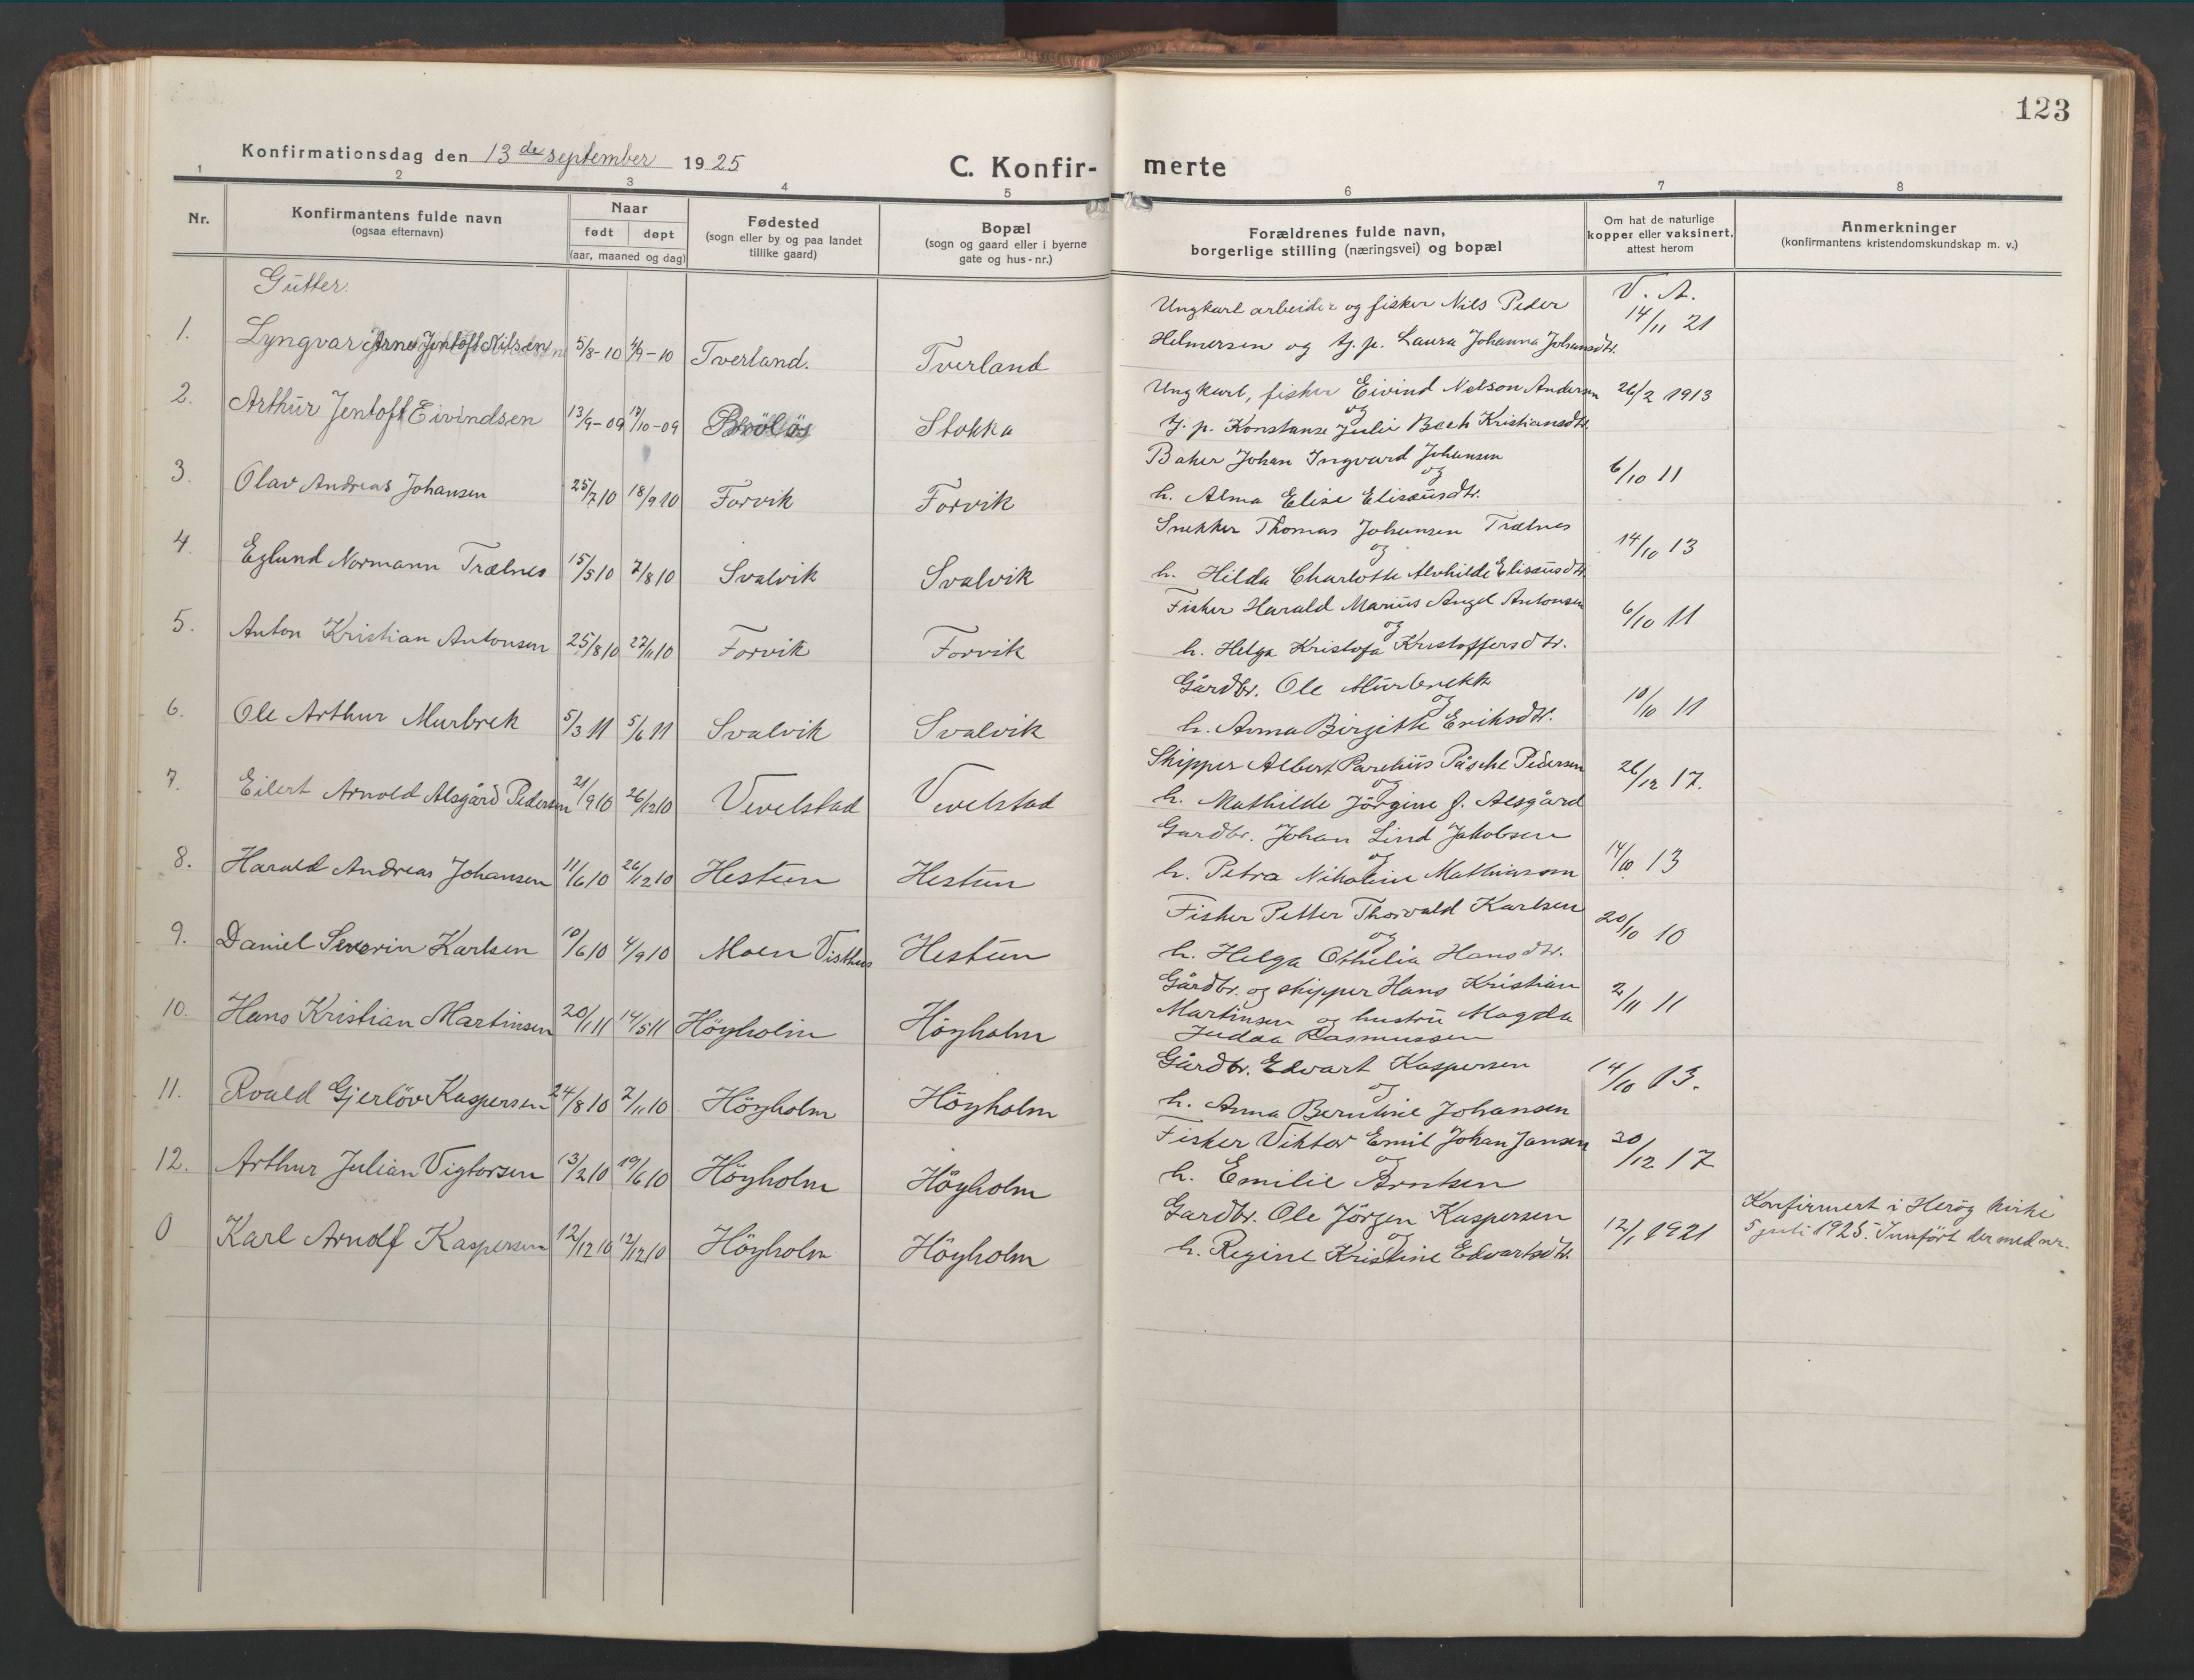 123
Konfirmationsdag den 13de september 1925
C. Konfir- merte
1 2 3 4 5 6 7 8
Nr.
Konfirmantens fulde navn
(ogsaa efternavn)
Naar
født døpt
(aar, maaned og dag)
Fødested
(sogn eller by og paa landet
tillike gaard)
Bopæl
(sogn og gaard eller i byerne
gate og hus-nr.)
Forældrenes fulde navn,
borgerlige stilling (næringsvei) og bopæl
Om hat de naturlige
kopper eller vaksinert,
attest herom
Anmerkninger
(konfirmantens kristendomskundskap m. v.)
Gutter.
V. A.
1. Lyngvar Arne Jentoft Nilsen 5/8-10 4/9-10 Tverland. Tverland
Ungkarl arbeider og fisker Nils Peder
Helmersen og tj. p. Laura Johanna Johansdtr.
14/11 21
2. Arthur Jentoft Eivindsen 13/9-09 17/10-09 Stokka
Ungkarl, fisker Eivind Nelson Andersen
og
tj. p. Konstanse Julie Bech Kristiansdtr.
26/2 1913
3. Olav Andreas Johansen 25/7 10 18/9 10 Forvik Forvik
Baker Johan Ingvard Johansen
og
h. Alma Elise Elisæusdtr.
6/10 11
4. Eglund Normann Trælnes 15/5 10 7/8 10 Svalvik Svalvik
Snekker Thomas Johansen Trælnes
og
h. Hilda Charlotte Alvhilde Elisæusdtr.
14/10 13
5. Anton Kristian Antonsen 25/8 10 27/11 10 Forvik Forvik
Fisker Harald Marius Angel Antonsen
og
h. Helga Kristofa Kristoffersdtr.
6/10 11
6. Ole Arthur Murbrek 5/3 11 5/6 11 Svalvik Svalvik
Gårdbr. Ole Murbrekk
og
h. Anna Birgitte Eriksdtr.
10/10 11
7. Eilert Arnold Alsgård Pedersen 21/9 10 26/12 10 Vevelstad Vevelstad
Skipper Albert Parelius Påsche Pedersen
og
h. Mathilde Jörgine f. Alsgård
26/12 17.
8. Harald Andreas Johansen 11/6 10 26/12 10 Hestun Hestun
Gardbr. Johan Lind Jakobsen
og
h. Petra Nikoline Mathiassen
14/10 13
9. Daniel Severin Karlsen 10/6 10 4/9 10 Moen Visthus Hestun
Fisker Petter Thorvald Karlsen
og
h. Helga Othelia Hansdtr.
20/10 10
10. Hans Kristian Martinsen 20/1 11 14/5 11 Höyholm Höyholm
Gårdbr. og skipper Hans Kristian
Martinsen og hustru Magda
Judaa Rasmussen
2/11 11
11. Roald Gjerlöv Kaspersen 24/8 10 7/11 10 Höyholm Höyholm
Gårdbr. Edvart Kaspersen
og
h. Anna Berntine Johansen
14/10 13.
12. Arthur Julian Vigtorsen 13/2 10 19/6 10 Höyholm Höyholm
Fisker Viktor Emil Johan Jansen
og
h. Emilie Arntsen
30/12 17
0 Karl Arnolf Kaspersen 12/12 10 Höyholm Höyholm
Gardbr. Ole Jörgen Kaspersen
og
h. Regine Kristine Edvartsdtr.
12/1 1921
Konfirmert i Heröy kirke
5 juli 1925. Innfört der med nr.